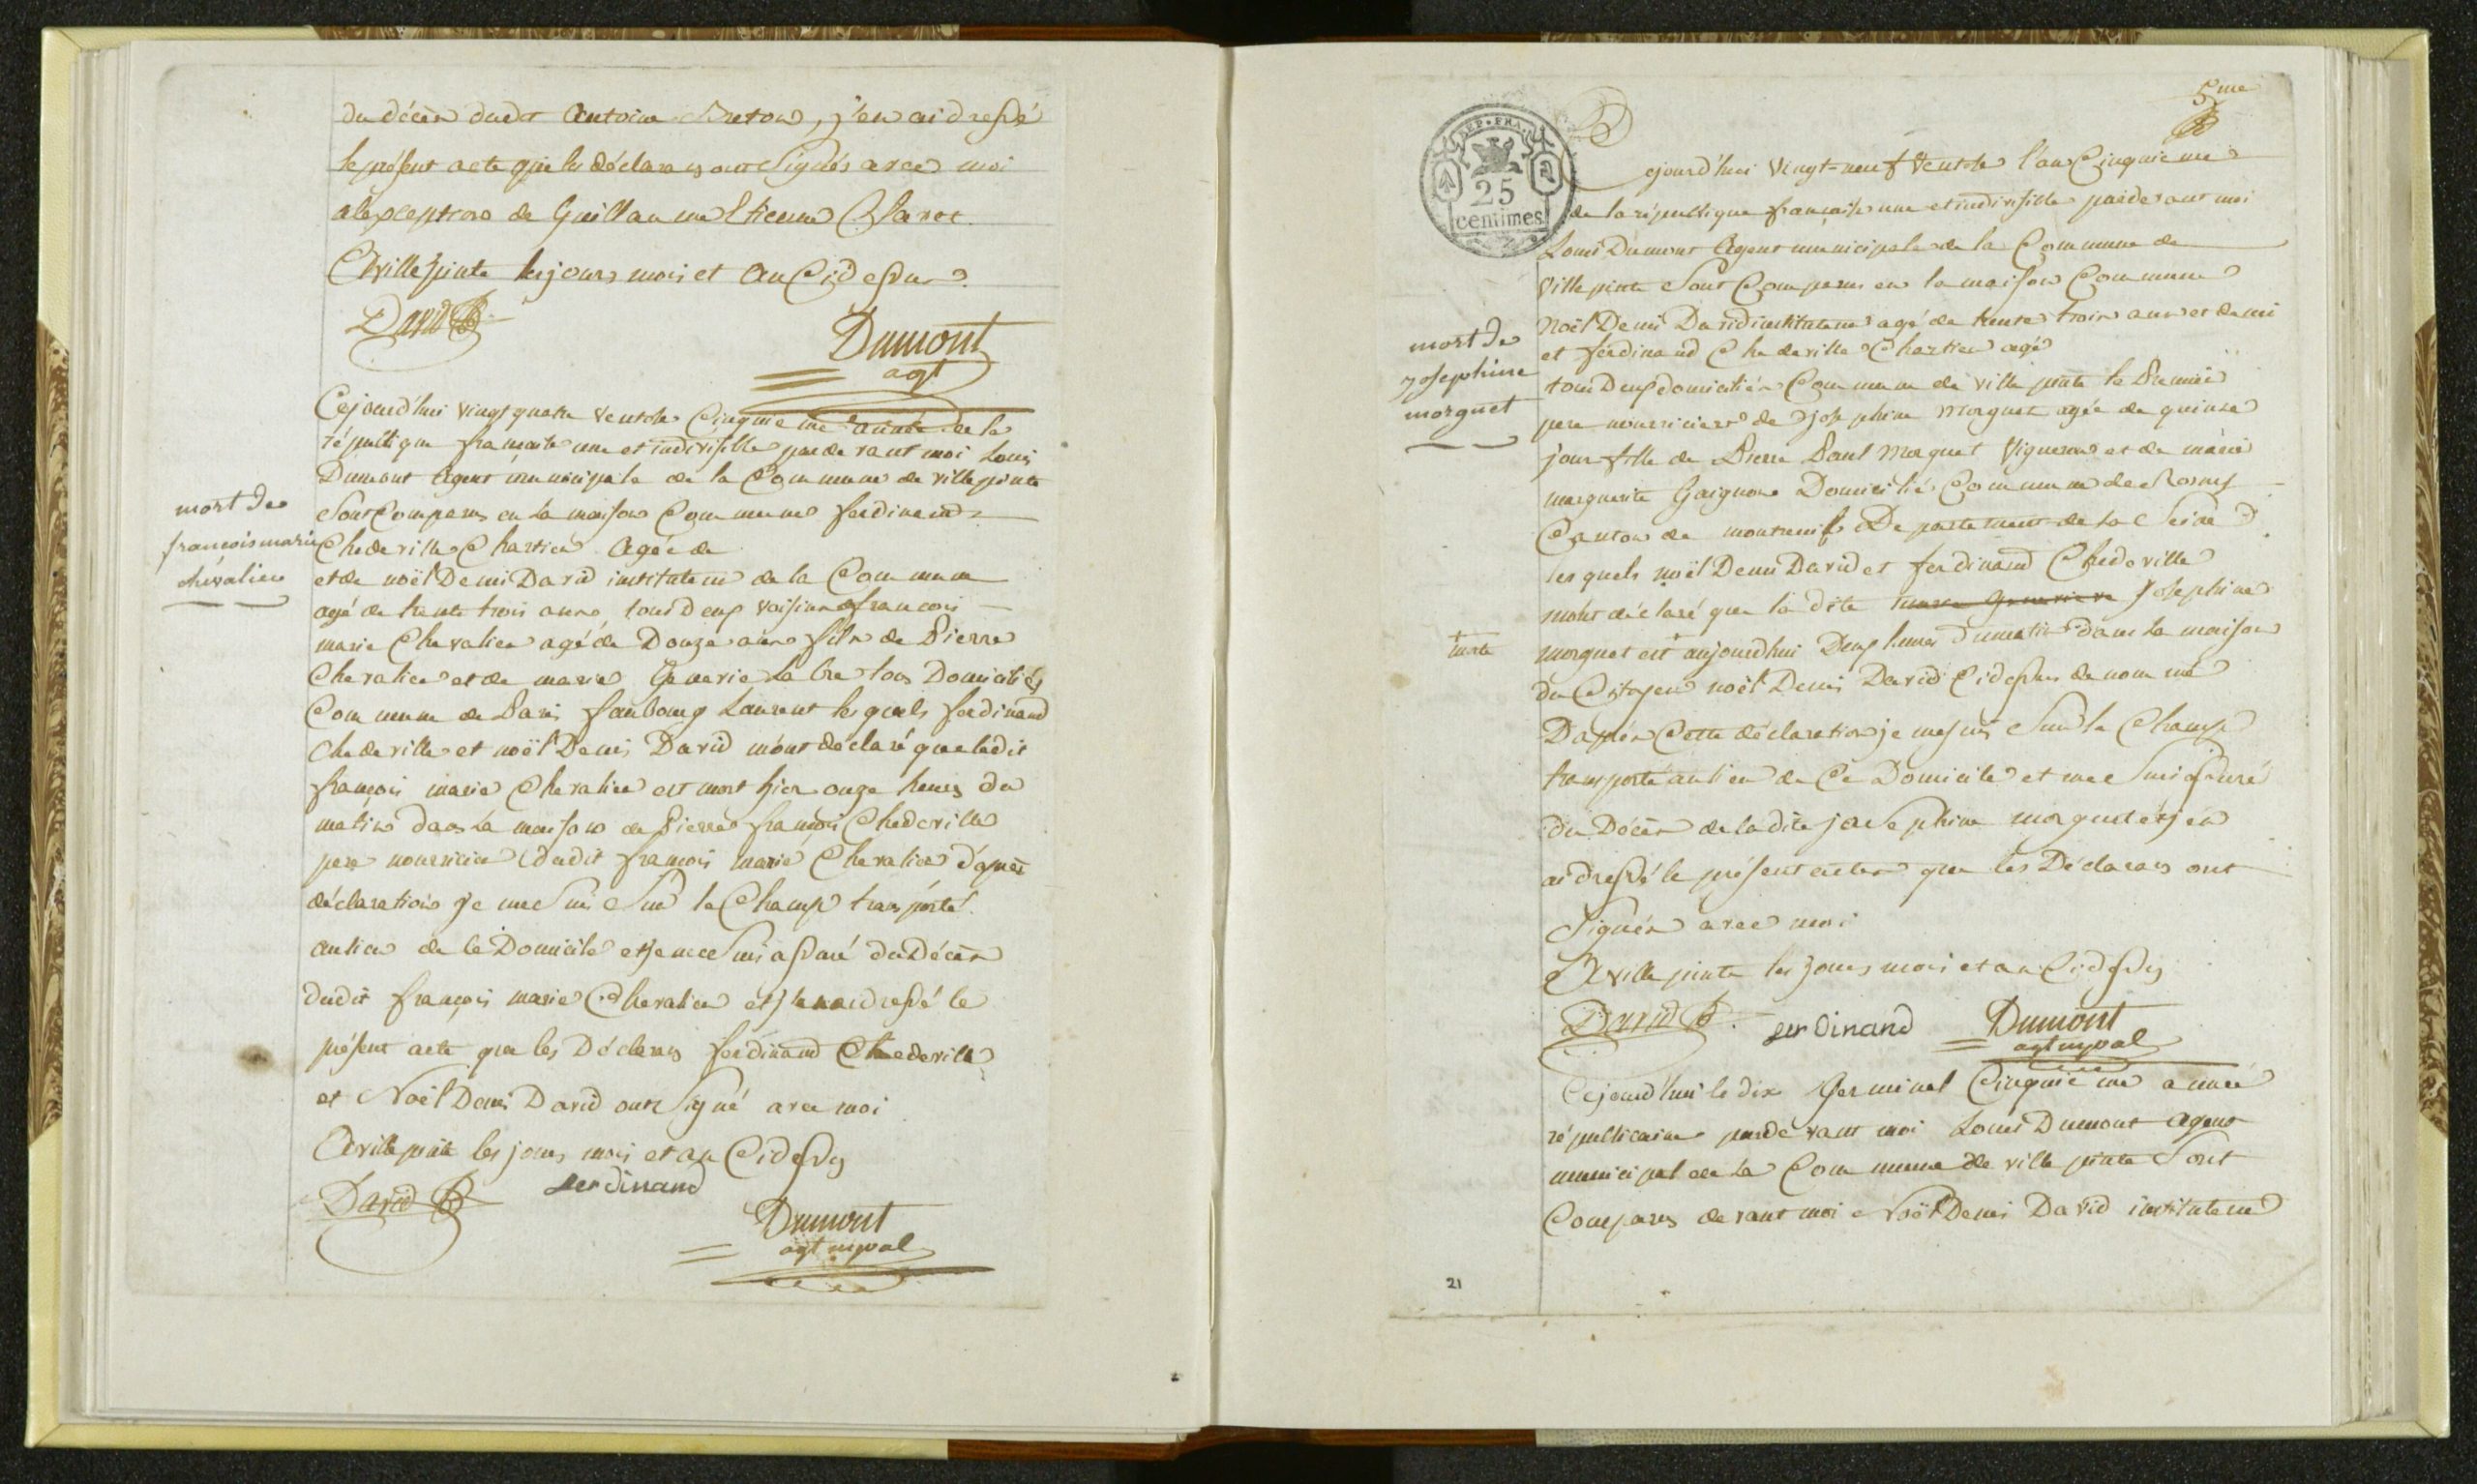 du décès dudt Antoine Breton, j'en ai dressé
le présent acte que les déclarans ont signés avec moi
a lexception de Guillaume Etienne
A villepinte les jours mois et an Cidessus
David
Dumont
agt
mort de
francois marie
chevalier
Cejourd'hui vingt quatre ventose Cinquieme année de la
république francaise une et indivisible pardevant moi Louis
Dumont Agent municipale de la Commune de villepinte
sont Comparus en la maison Commune ferdinand
Chedeville Chartier Agée de
et de noël Denis David instituteur de la Commune
agé de trente trois ans, tous deux voisins francois
marie Chevalier agé de Douze ans fils de Pierre
Chevalier et de marie Genevie Domiciliés
Commune de Paris faubourg Laurent les quels ferdinand
Chedeville et noël Denis David m'ont déclaré que ledit
françois marie Chevalier est mort hier onze heures du
matin dans la maison de Pierre françois Chedeville
pere nourricier dudit françois marie Chevalier d'après
déclaration je me suis sur le Champ transporté
au lieu de ce Domicile et je me suis assuré du Décès
dudit françois marie Chevalier et j'en ai dressé le
présent acte que les Déclarans ferdinand Chedeville
et Noël Denis David ont signé avec moi
A villepinte les jours mois et an Cidessus
David
ferdinand
Dumont
agt mpal
5me
REP. FRA.
25
centimes
Cejourd'hui vingt-neuf ventose l'an Cinquieme
de la république francaise une et indivisible pardevant moi
Louis Dumont Agent municipale de la Commune de
villepinte sont Comparus en la maison Commune
Noël Denis David instituteur agé de trente trois ans et demi
et ferdinand Chedeville Chartier agé
mort de
josephine
morguet
tous Deux domiciliés Commune de villepinte le Premier
pere nourricier de josephine morguet agée de quinze
jours fille de Pierre Paul morguet vigneron et de marie
marguerite Domicilié Commune de Rosny
Canton de montreuil Departement de la Seine
les quels noël Denis David et ferdinand Chedeville
m'ont déclaré que la dite Josephine
+
morte
morguet est + aujourdhui Deux heures du matin dans la maison
du Citoyen noël Denis David Cidessus denommé
Daprès Cette déclaration je me suis sur le Champ
transporté au lieu de Ce Domicile et me suis assuré
du Décès de la dite josephine morguet et j'en
ai dressé le présent acte que les Déclarans ont
signés avec moi
A villepinte les jours mois et an Cidessus
David
ferdinand
Dumont
agt mpal
Cejourd'hui le dix Germinal Cinquieme année
républicaine pardevant moi Louis Dumont agent
municipal de la Commune de villepinte sont
Comparus devant moi Noël Denis David instituteur
21